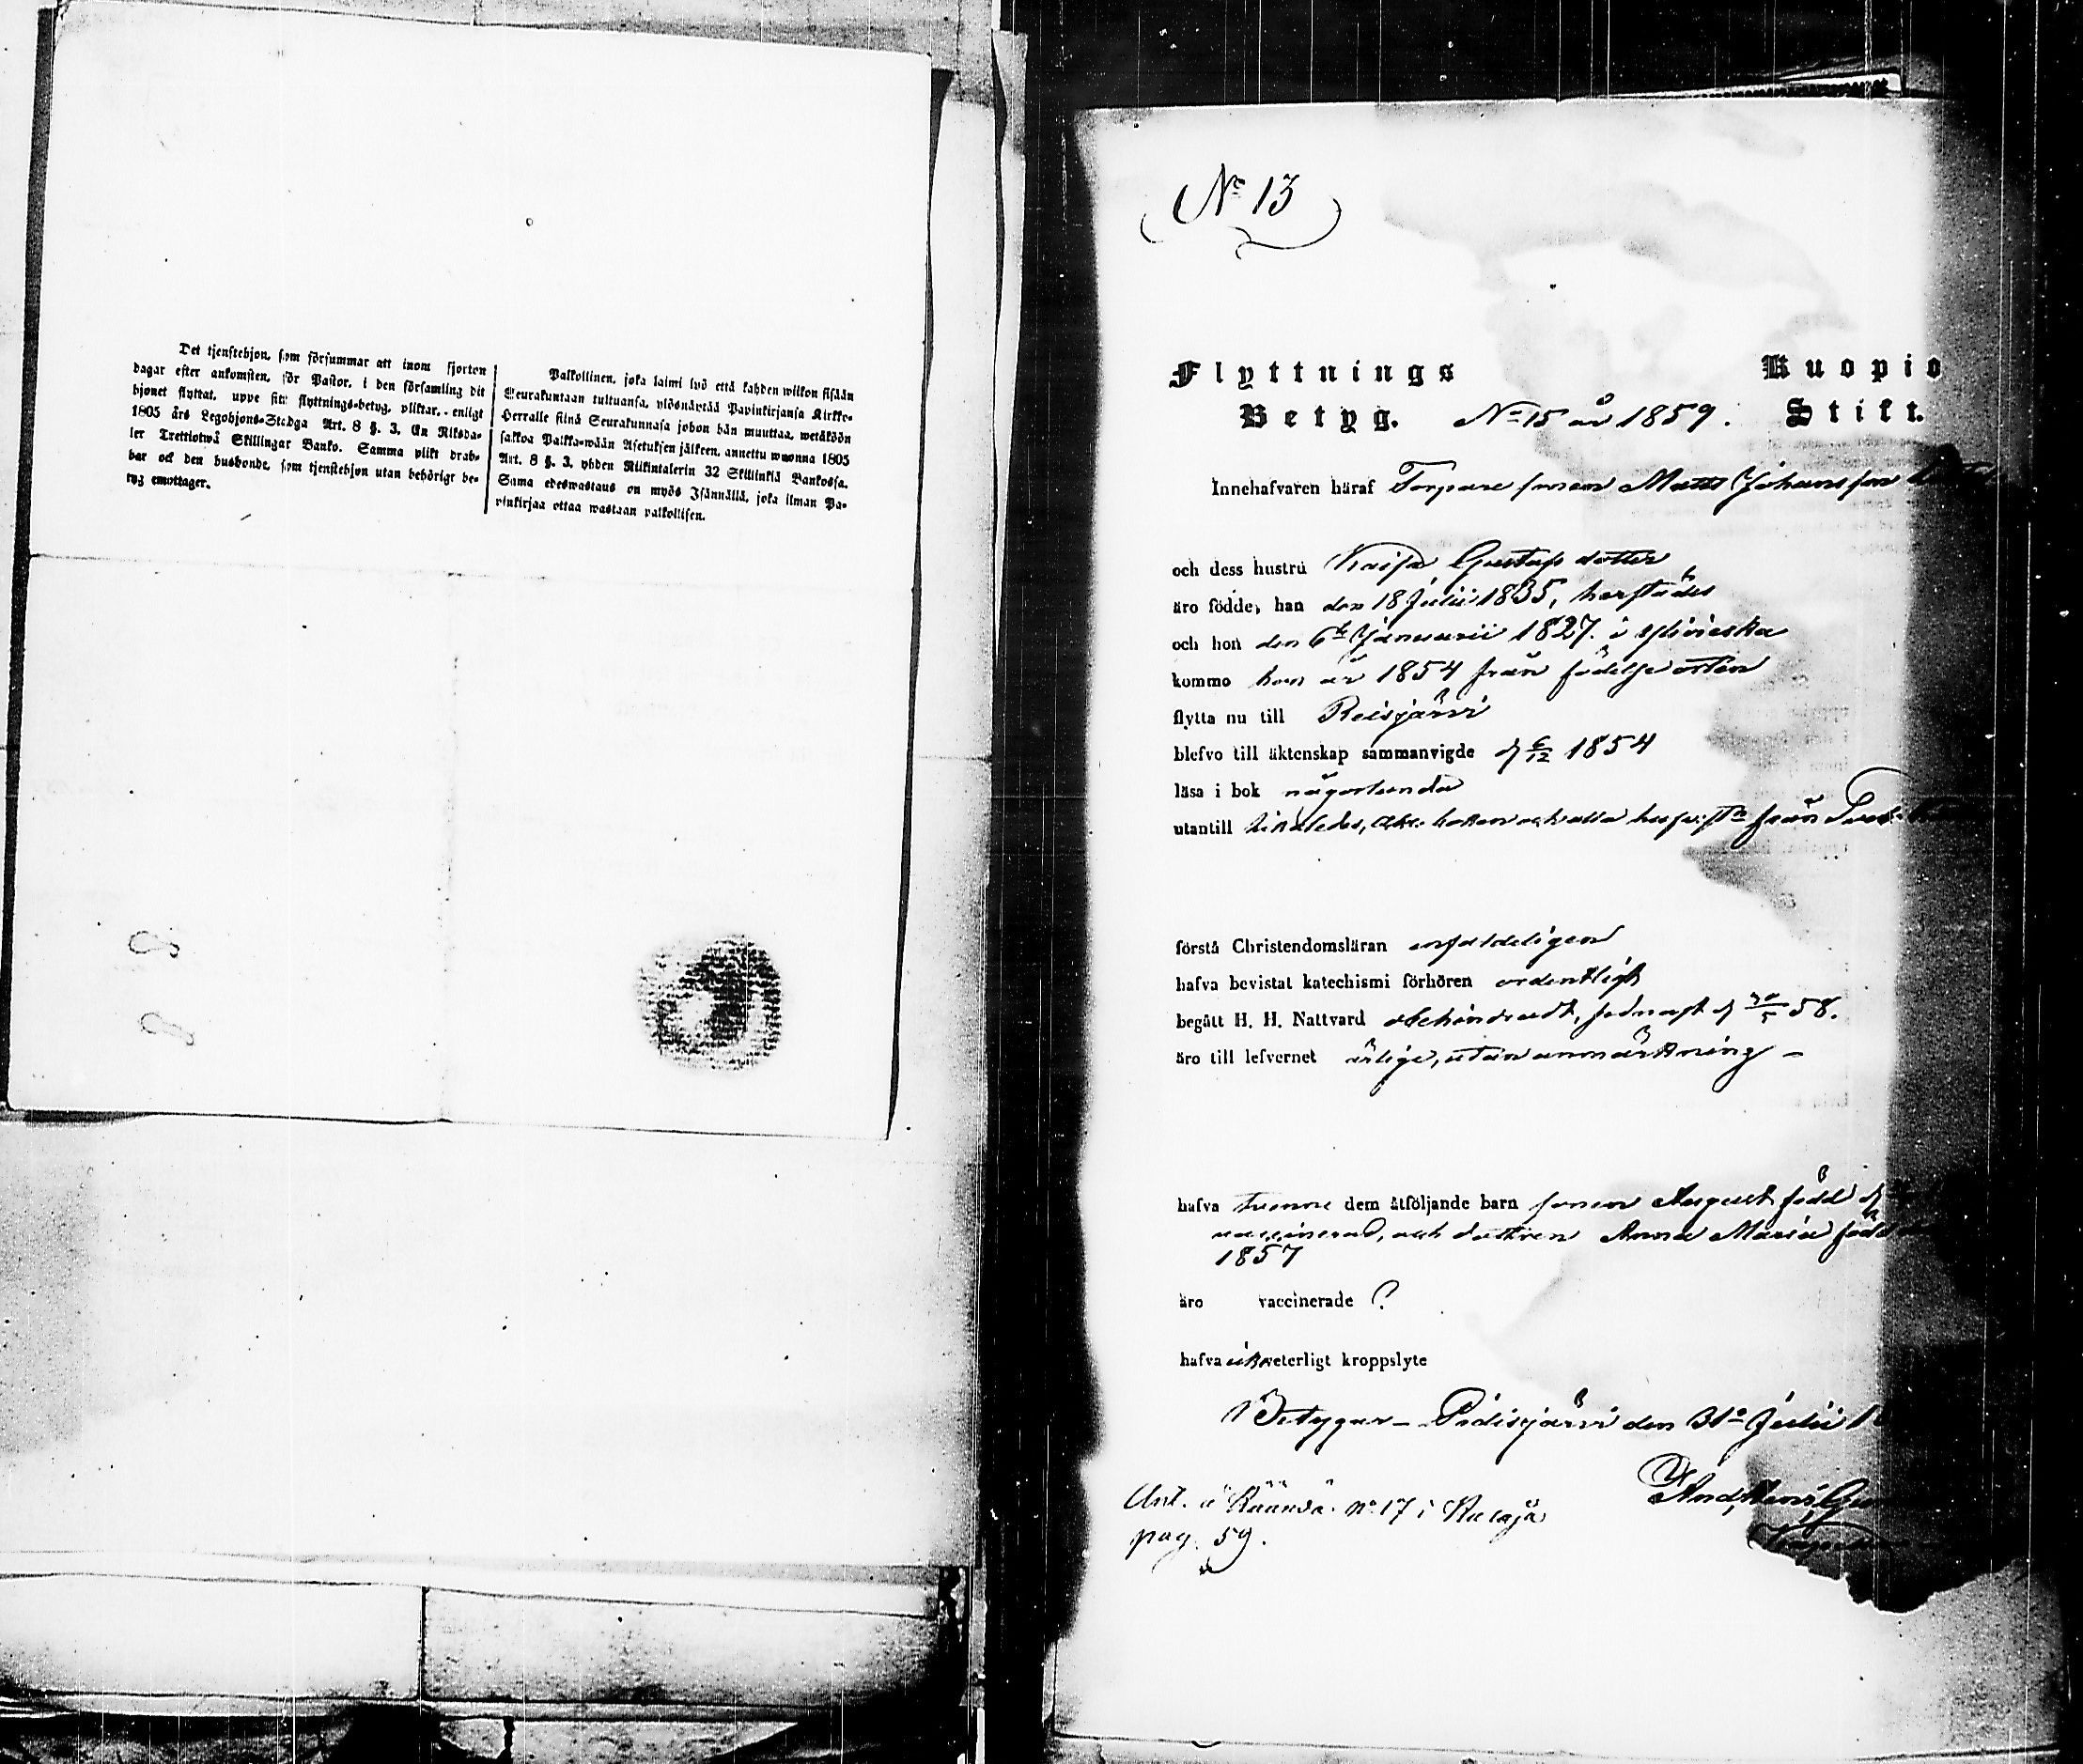 Det tjenstehjon, som försummar att inom fjorton
dagar efter ankomsten, för Pastor, i den församling dit
hjonet flyttat, uppe sitt flyttnings-betyg, pliktar, enligt
1805 års Legohjons-Stadga Art. 8 §. 3. En Riksda-
ler Trettiotwå Skillingar Banko. Samma plikt drab-
bar ock den husbonde, som tjenstehjon utan behörigt be-
tyg emottager.
Palkollinen, joka laimi lyö että kahden wiikon sisään
Seurakuntaan tultuansa, ylösnäyttää Papinkirjansa Kirkko-
Herralle siinä Seurakunnasa johon hän muuttaa, wetäköön
sakkoa Palkka-wään Asetuksen jälkeen, annettu wuonna 1805
Art. 8 §. 3, yhden Riikintalerin 32 Skillinkiä Bankossa.
Sama edeswastaus on myös Isännällä, joka ilman Pa-
pinkirjaa ottaa wastaan palkollisen.
No 13
Flyttnings Kuopio
Betyg. No 15 år 1859. Stift.
Innehafvaren häraf Torpare sonen Matts Johansson
och dess hustru Kaisa Gustafsdotter
äro födde, han den 18 Julii 1835, härstädes
och hon den 6te Januarii 1827. i Ylivieska
kommo hon år 1854 från födelseorten
flytta nu till Reisjärvi
blefvo till äktenskap sammanvigde d 6/12 1854
läsa i bok någorlunda
utantill likaledes, Abc boken och från
förstå Christendomsläran enfaldeligen
hafva bevistat katechismi förhören ordentligt
begått H. H. Nattvard obehindradt, sednast d 30/5 58.
äro till lefvernet ärlige, utan anmärkning –
hafva tvenne dem åtföljande barn sonen August född d
vaccinerad, och dottren Anna Maria född
1857
äro vaccinerade ?
hafva icke veterligt kroppslyte
Betygar – Pidisjärvi den 31 Julii 1
Ant. å Räänä No 17 i
pag. 59.
And,